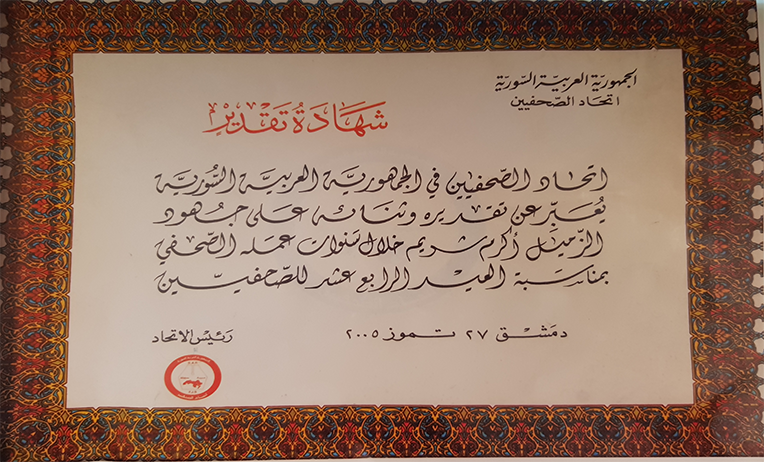 الجمهوريّة العربيّة السّوريّة
اتحاد الصّحفيين
شهادةُ تقديرٍ
اتحاد الصّحفيين في الجمهوريَّة العربيَّة السُّوريَّة
يُعَبِّر عن تقديره وثنائه على جهود
الزميل أكرم شريم خلال سنوات عمله الصّحفي
بمناسبة العيد الرابع عشر للصّحفيّين
دمشق ٢٧ تموز ٢٠٠٥
رئيس الاتحاد